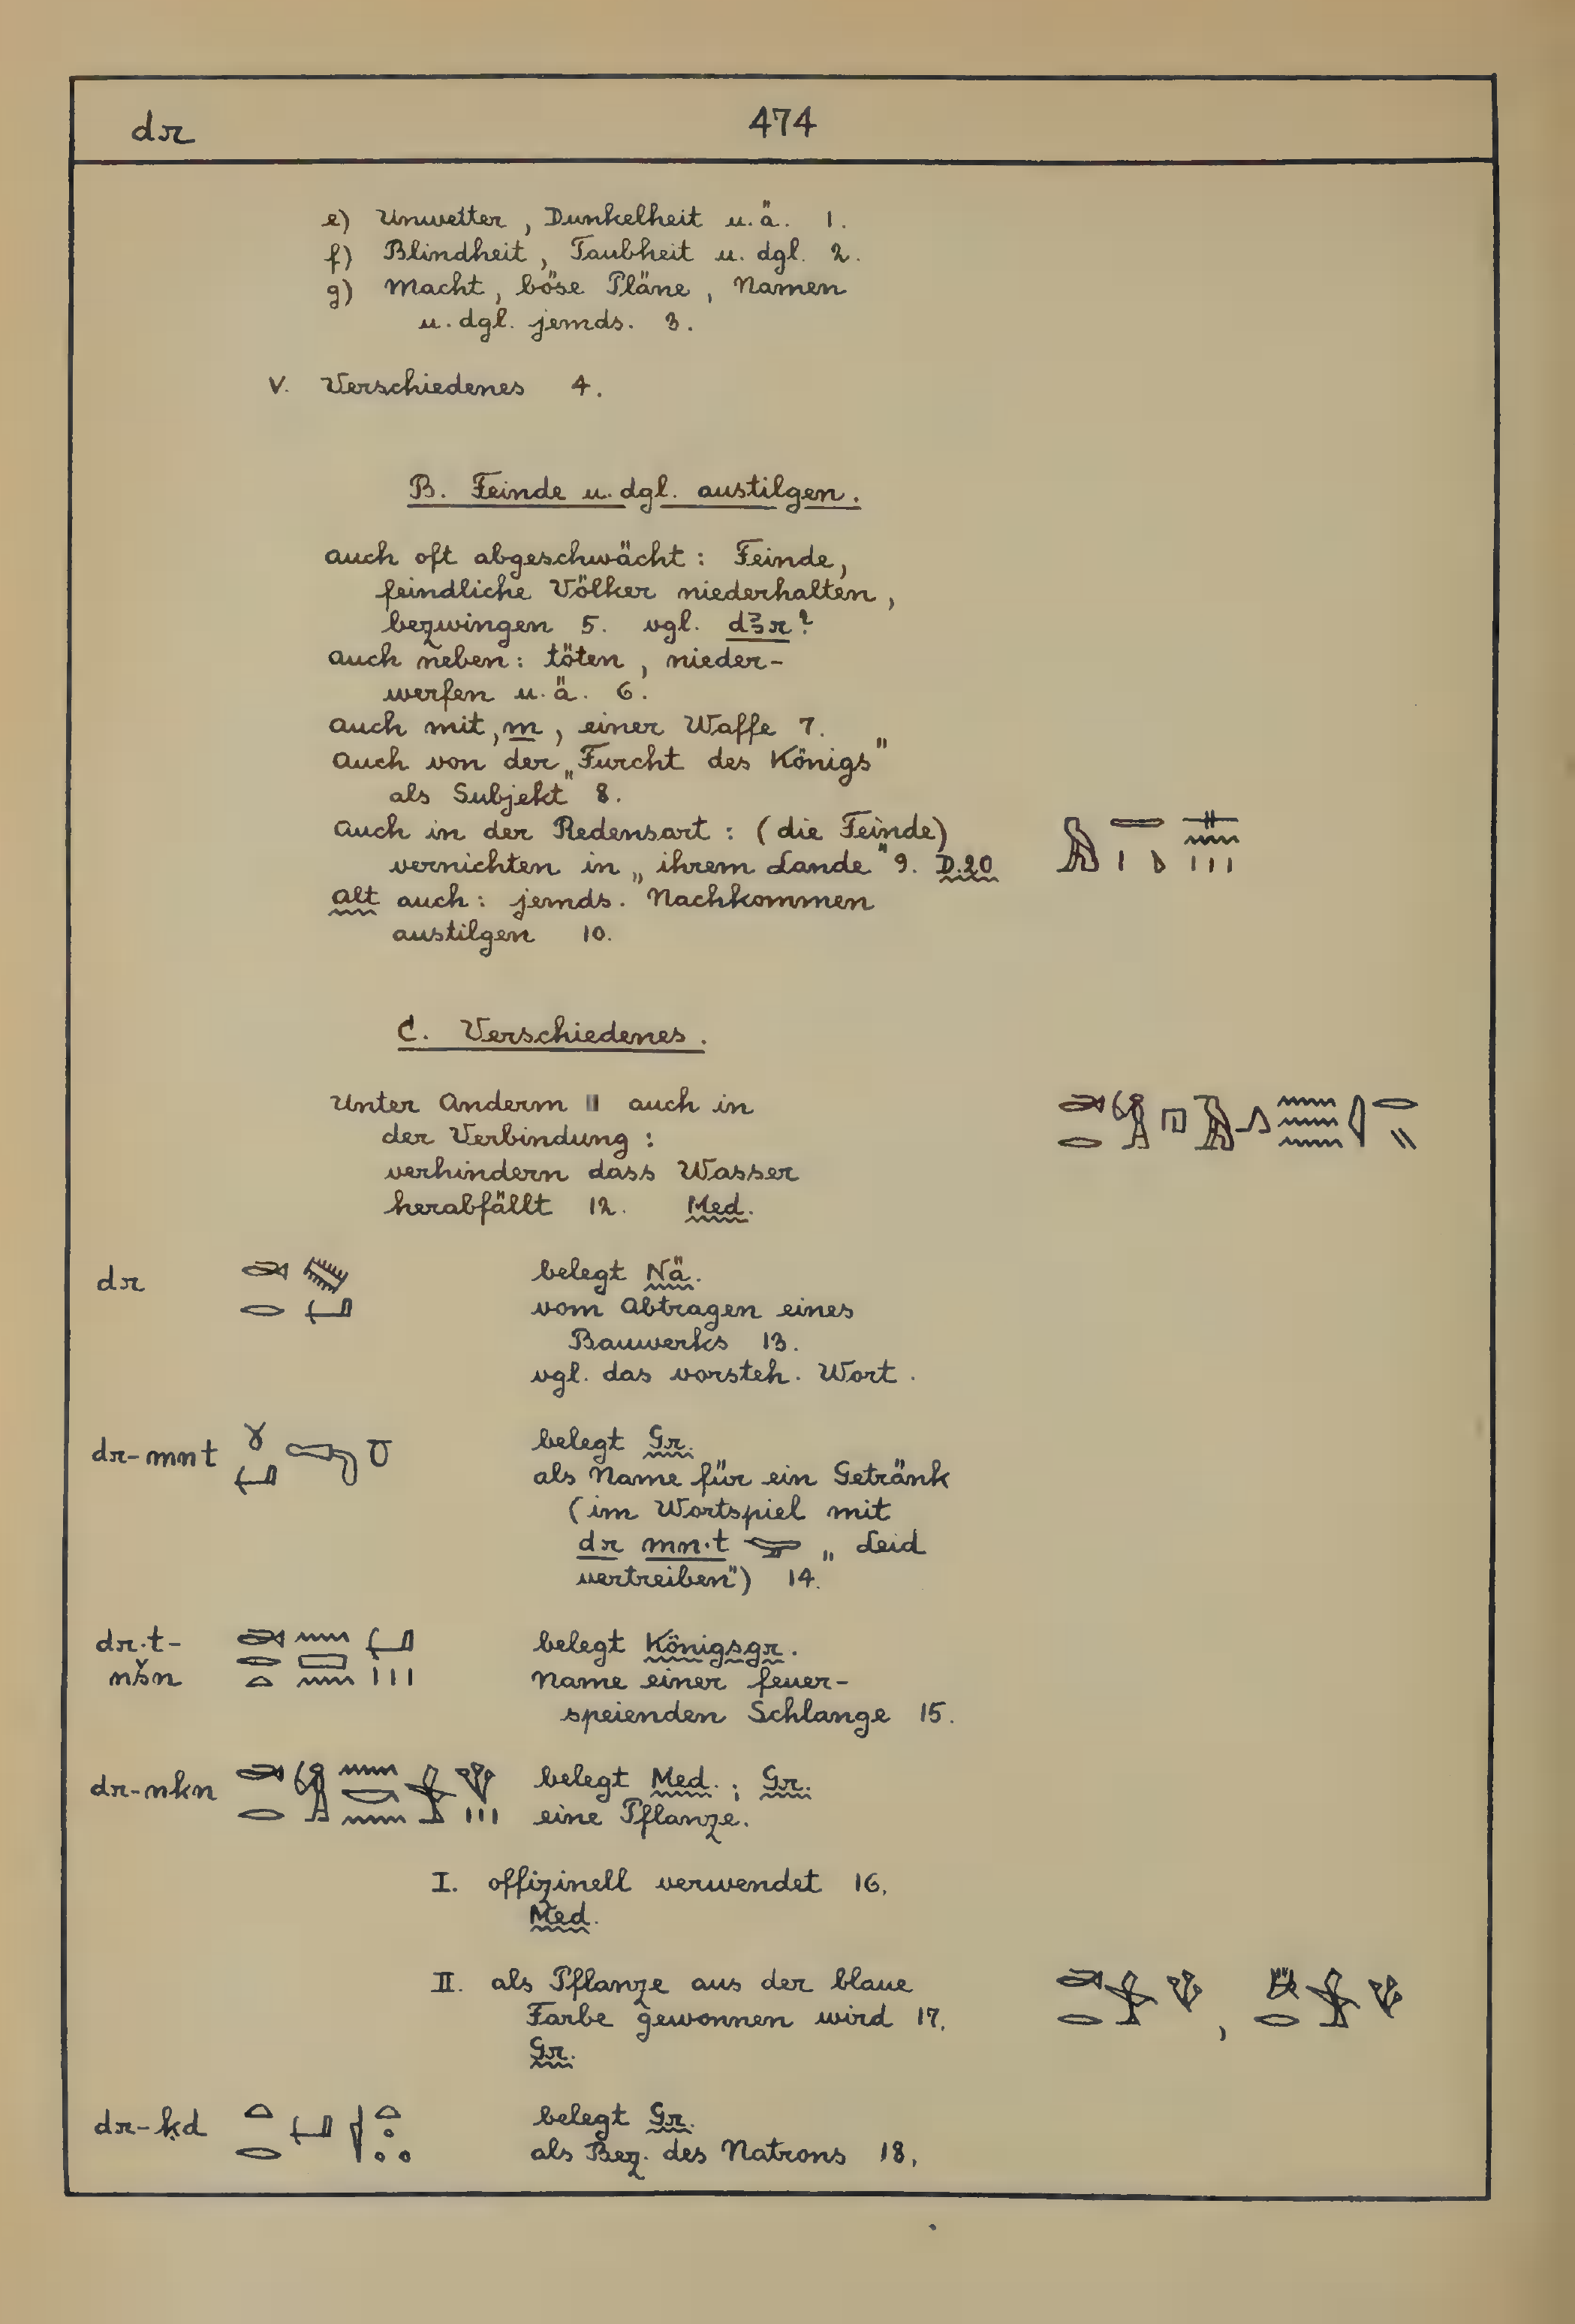 dr 474
e) Unwetter, Dunkelheit u. ä. 1.
f) Blindheit, Taubheit u. dgl. 2.
g) Macht, böse Pläne, Namen
u. dgl. jemds. 3.
V. Verschiedenes 4.
B. Feinde u. dgl. austilgen.
auch oft abgeschwächt: Feinde,
feindliche Völker niederhalten,
bezwingen 5. vgl. dꜣr?
auch neben: töten, nieder-
werfen u. ä. 6.
Auch mit, m, einer Waffe 7.
Auch von der „Furcht des Königs"
als Subjekt 8.
Auch in der Redensart: (die Feinde)
vernichten in „ihrem Lande" 9. D.20
Alt auch: jemds. Nachkommen
austilgen 10.
C. Verschiedenes.
Unter Anderm auch in
der Verbindung:
verhindern dass Wasser
herabfällt 12. Med.
dr belegt Nä.
vom Abtragen eines
Bauwerks 13.
vgl. das vorsteh. Wort.
dr-mnt belegt Gr.
als Name für ein Getränk
(im Wortspiel mit
dr mn·t „Leid
vertreiben") 14.
dr·t- belegt Königsgr.
nšn Name einer feuer-
speienden Schlange 15.
dr-nkn belegt Med.; Gr.
eine Pflanze.
I. offizinell verwendet 16.
Med.
II. als Pflanze aus der blaue
Farbe gewonnen wird 17.
Gr.
dr-ḳd belegt Gr.
als Bez. des Natrons 18.